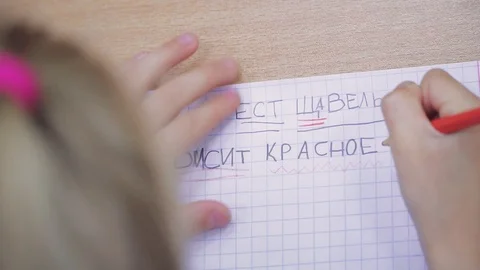 ЕСТ ЩАВЕЛЬ
ВИСИТ КРАСНОЕ